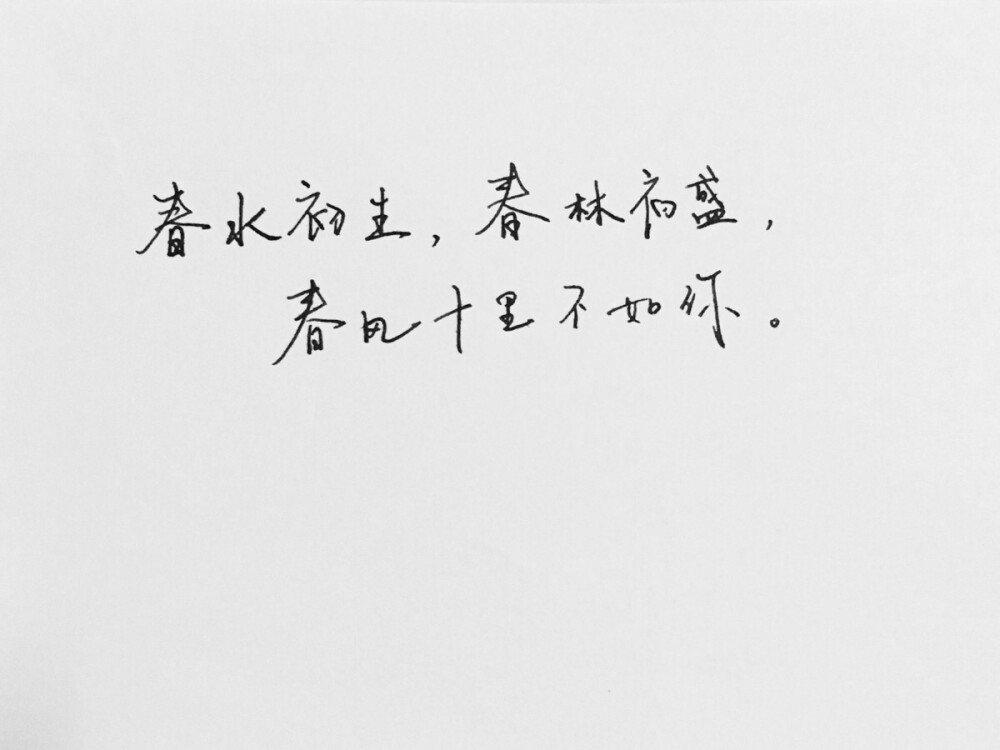 春水初生，春林初盛，
春风十里不如你。